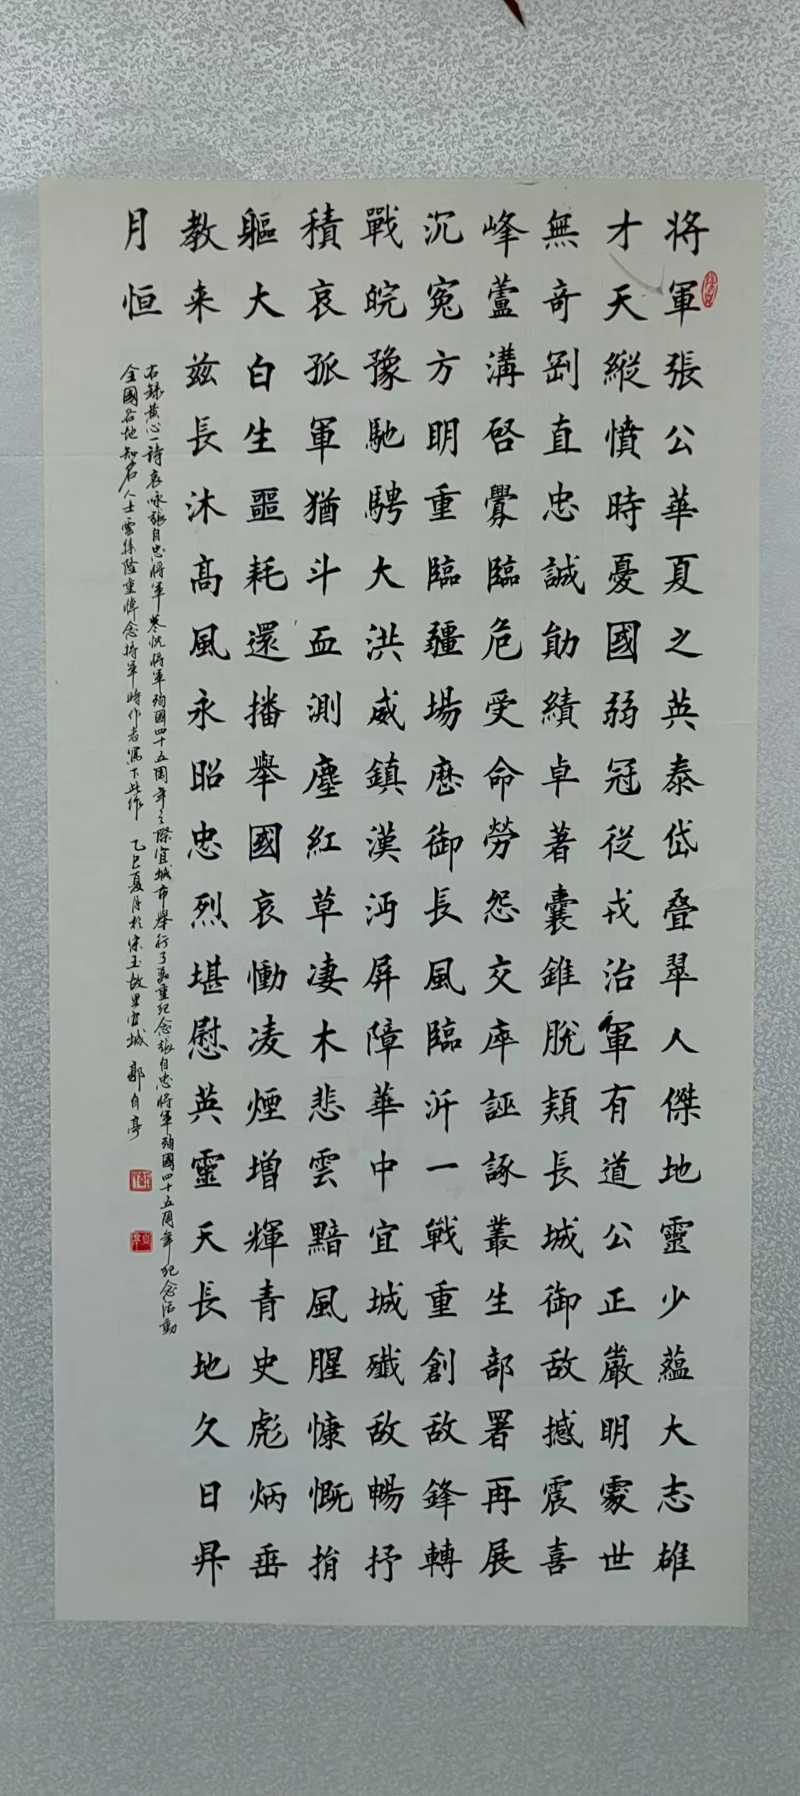 將軍張公華夏之英泰岱叠翠人傑地靈少蘊大志雄
才天縱憤時憂國弱冠従戎治軍有道公正嚴明處世
無奇剛直忠誠勛績卓著囊錐脫穎長城御敌撼震喜
峰蘆溝啓釁臨危受命勞怨交库誣諑叢生部署再展
沉寃方明重臨疆場歷御長風臨沂一戰重創敌鋒轉
戰皖豫馳騁大洪威鎮漢沔屏障華中宜城殲敌暢抒
積哀孤軍猶斗血測塵紅草凄木悲雲黯風腥慷慨捐
軀大白生噩耗還播舉國哀慟凌煙增輝青史彪炳垂
教来兹長沐高風永昭忠烈堪慰英靈天長地久日昇
月恒
右録黄心一詩哀咏張自忠將軍 將軍殉國四十五周年之際宜城市舉行了 重紀念張自忠將軍殉國四十五周年紀念活動
全國各地知名人士雲集隆重悼念將軍時作者寫下此作 乙巳夏月於宋玉故里宜城 郭自亭